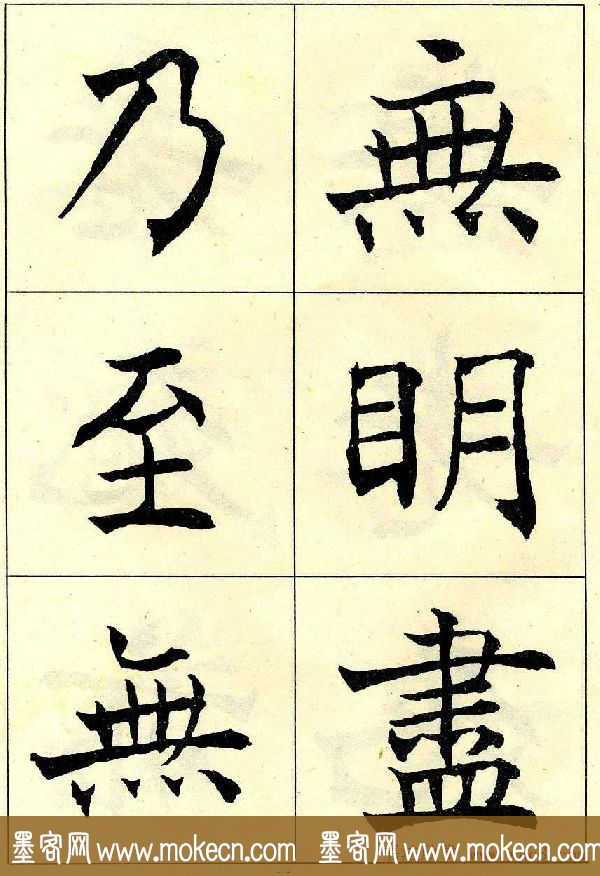 無明盡
乃至無
墨客网 www.mokecn.com 墨客网 www.mokecn.com